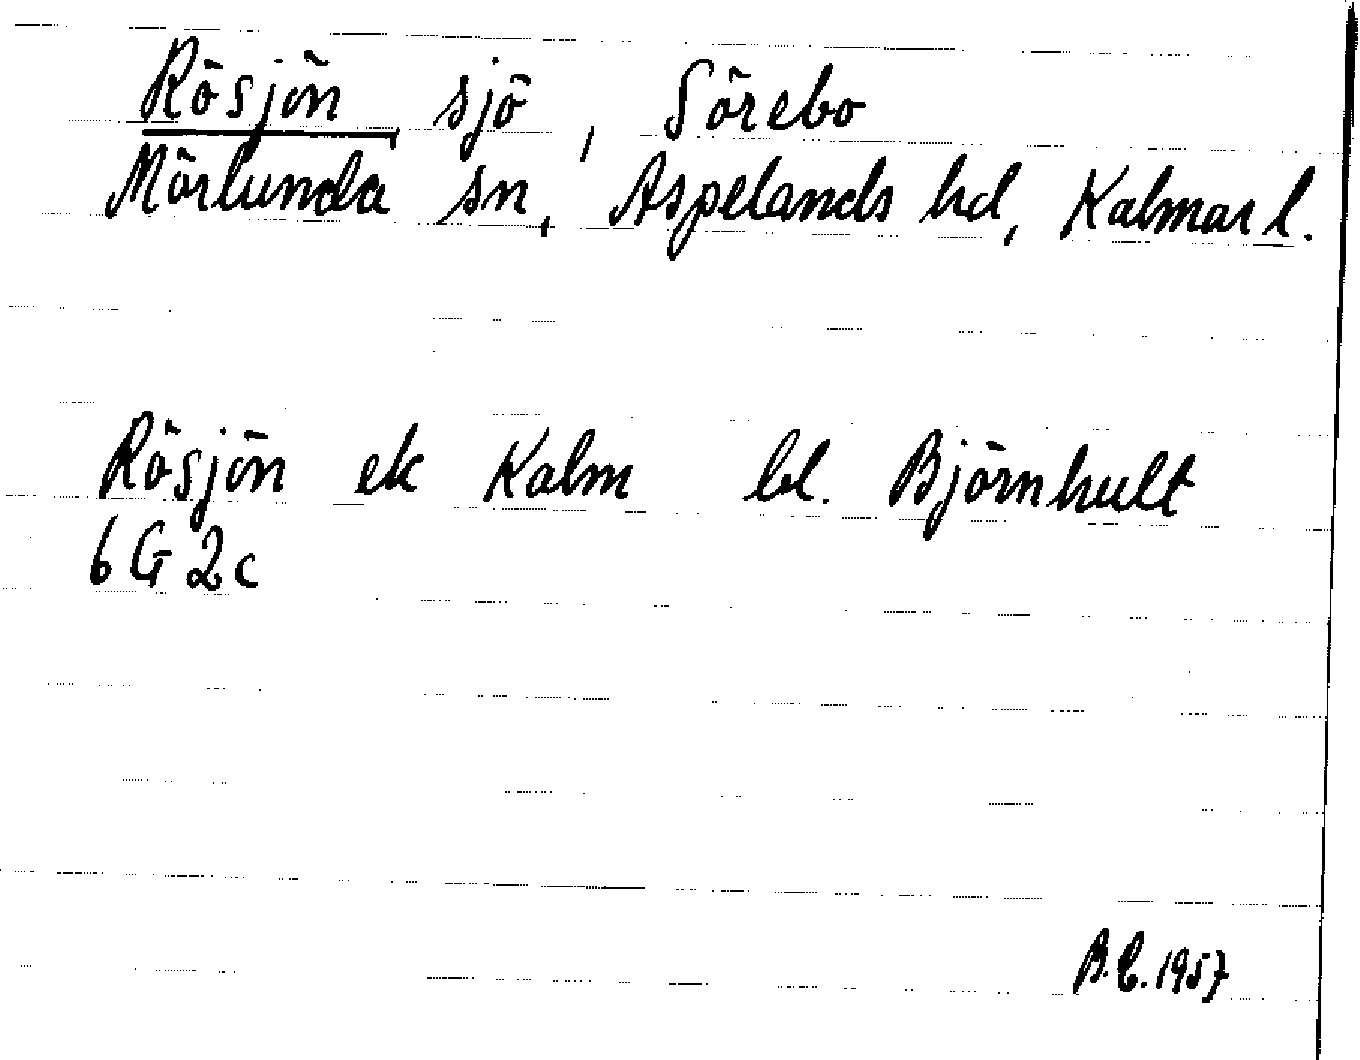 Rösjön sjö, Sörebo
Mörlunda sn, Aspelands hd, Kalmar l.
Rösjön ek Kalm bl. Björnhult
6G 2c
B.E. 1957